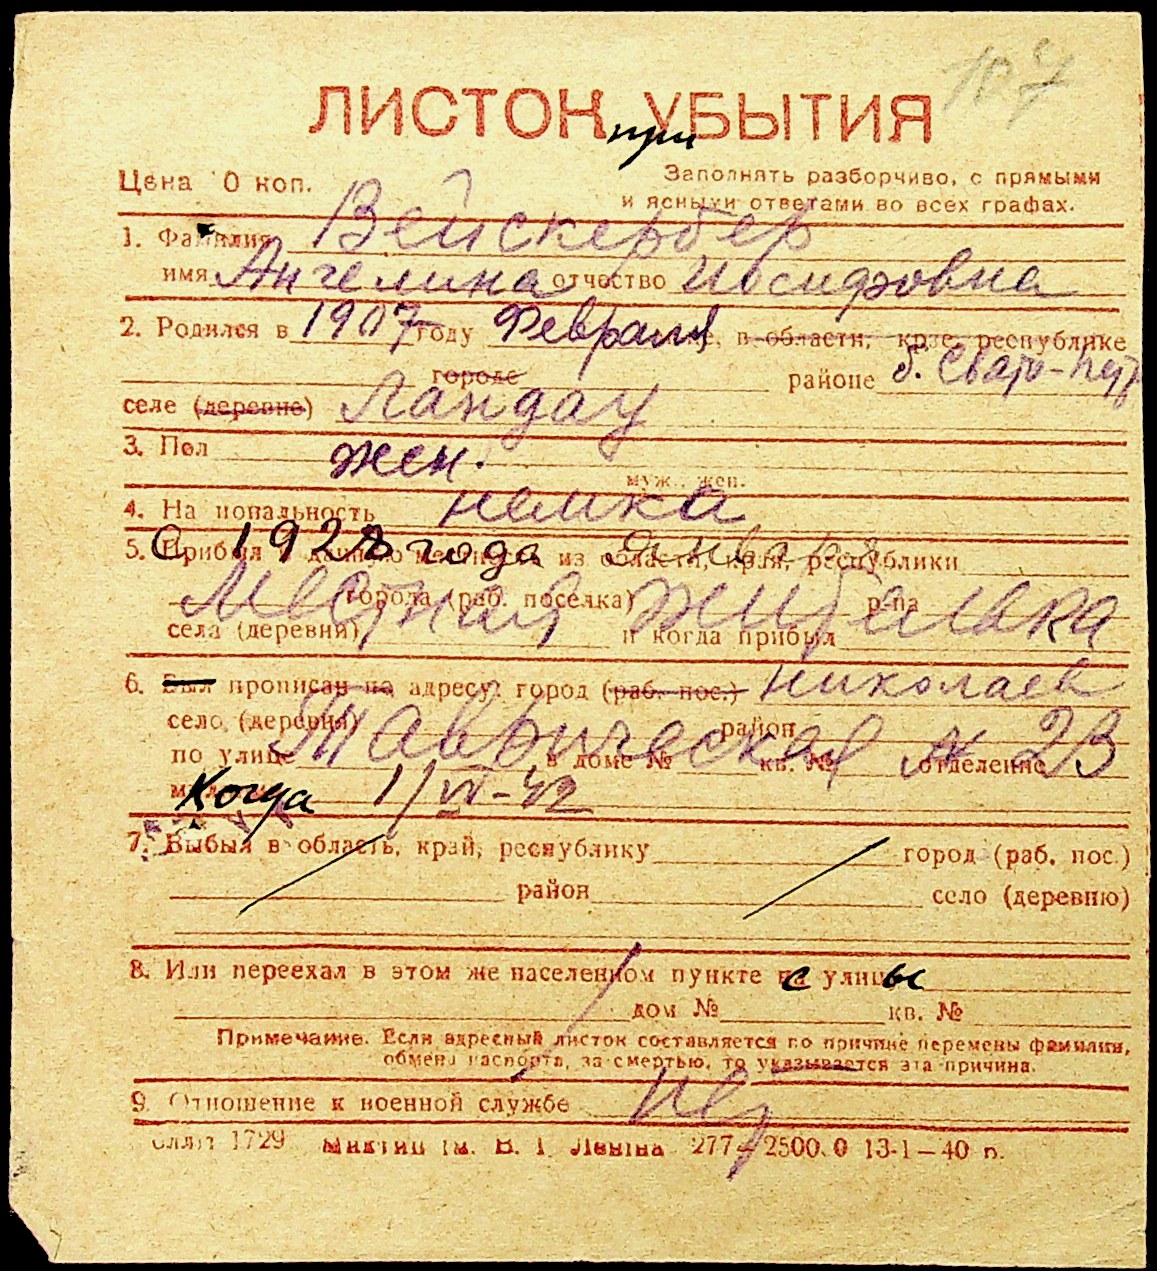 107
ЛИСТОК УБЫТИЯ
при
Цена 0 коп.
Заполнять разборчиво, с прямыми
и ясными ответами во всех графах.
1. Фамилия Вейскербер
имя Ангелина отчество Иосифовна
2. Родился в 1907 году Февраля, в области, крае, республике
городе районе б. Свято-Петр
селе (деревне) Ландау
3. Пол жен.
муж., жен.
4. Национальность немка
5. Прибыл в данную местность из области, края, республики
С 1928 года января
города (раб. поселка) р-на
Местная жителька
села (деревни) и когда прибыл
6. Был прописан по адресу: город (раб. пос.) Николаев
село (деревня) район
по улице Таврическая в доме № кв. № отделение № 23
Когда 1/VI-42
7. Выбыл в область, край, республику город (раб. пос.)
район село (деревню)
8. Или переехал в этом же населенном пункте с улицы
дом № кв. №
Примечание. Если адресный листок составляется по причине перемены фамилии,
обмена паспорта, за смертью, то указывается эта причина.
9. Отношение к военной службе нет
1729 В. І. Леніна 277 2500.0 13-1-40 р.